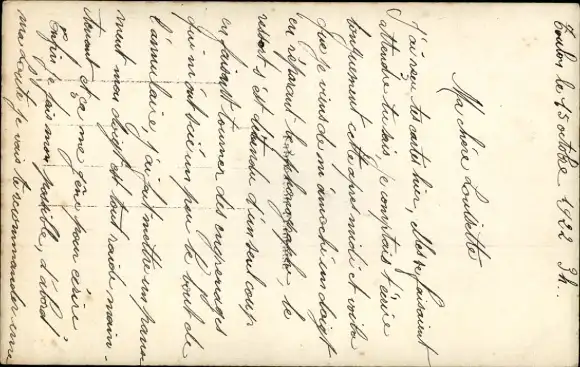 Toulon le 15 octobre 1922 9h.
Ma chère Loulette
J'ai reçu tes cartes hier, elles se faisaient
attendre tu sais, je comptais t'écrire
longuement cette après midi et voila
que je viens de m'amoché un doigt
en réparant le phonographe, le
ressort s'est détendu d'un seul coup
en faisant tourner des engrenages
qui m'ont scié un peu le bout de
l'annulaire, j'ai fait mettre un panse-
ment mon doigt est tout raide main-
tenant et ça me gêne pour écrire
Enfin je fais mon possible, d'abord
ma Loute je vais te recommander une